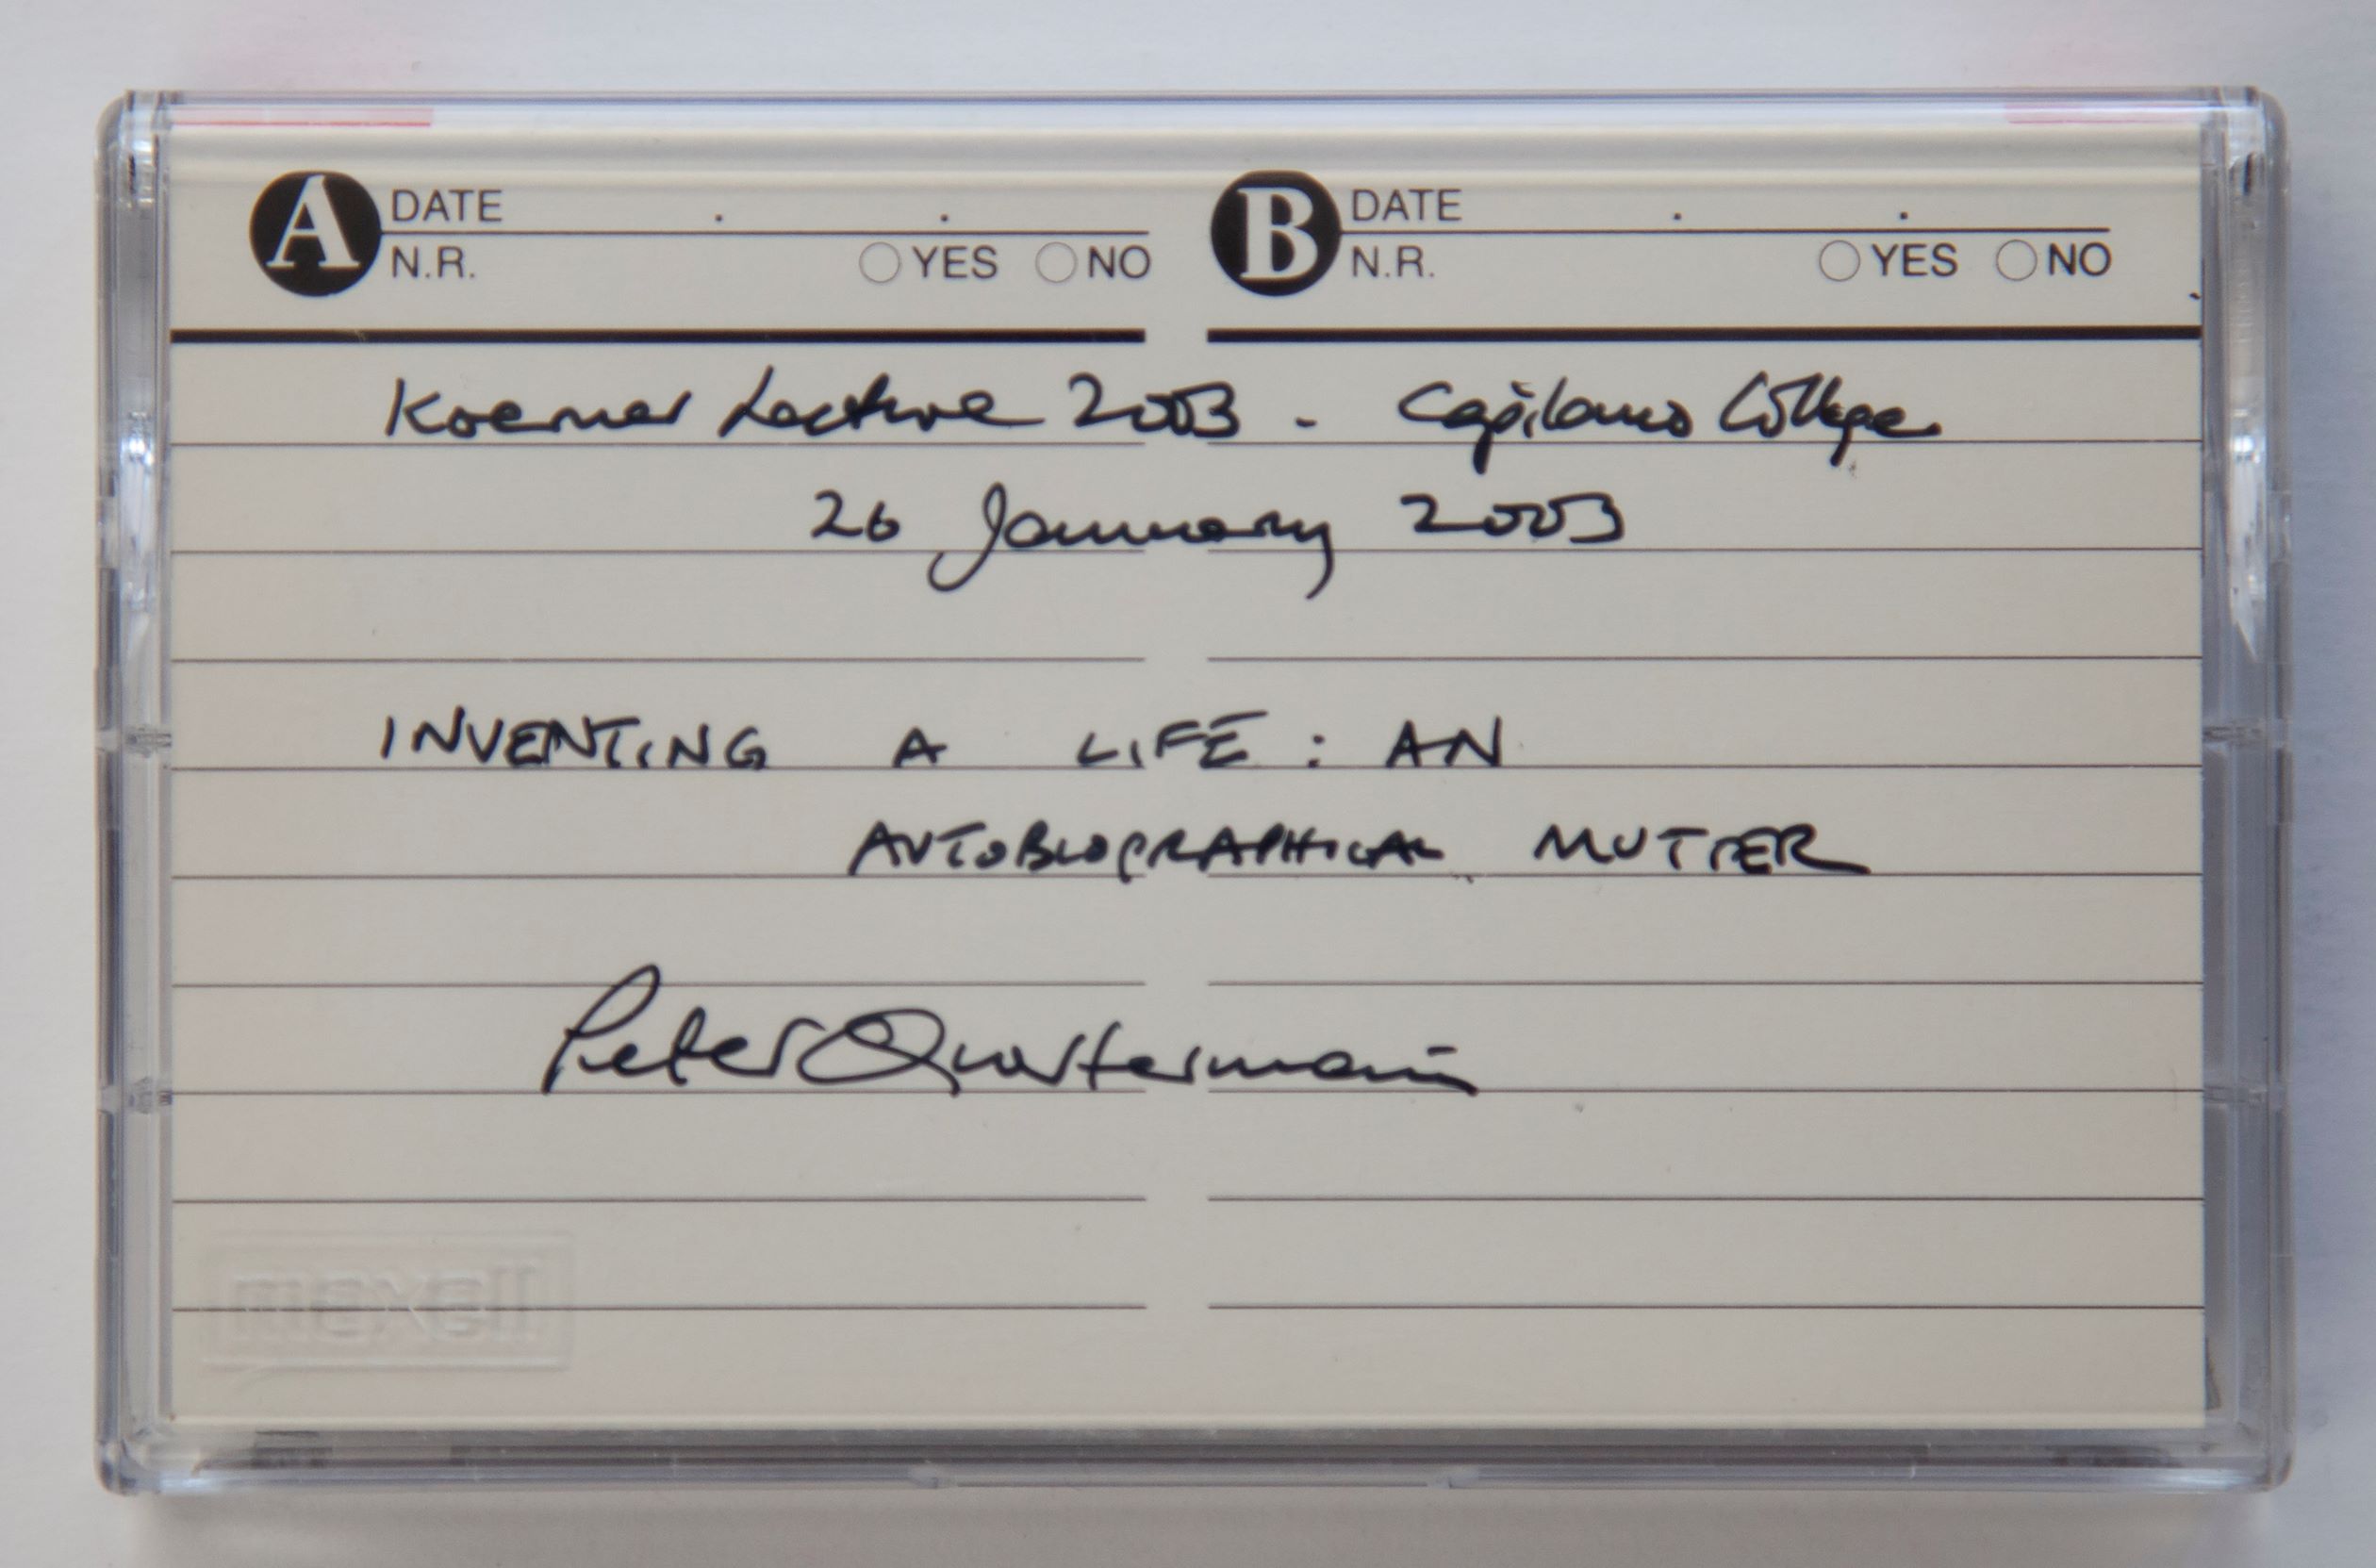 A DATE . . B DATE . .
N.R. YES NO N.R. YES NO
Koerner Lecture 2003 - Capilano College
26 January 2003
INVENTING A LIFE : AN
AUTOBIOGRAPHICAL MUTTER
Peter Quartermain
maxell